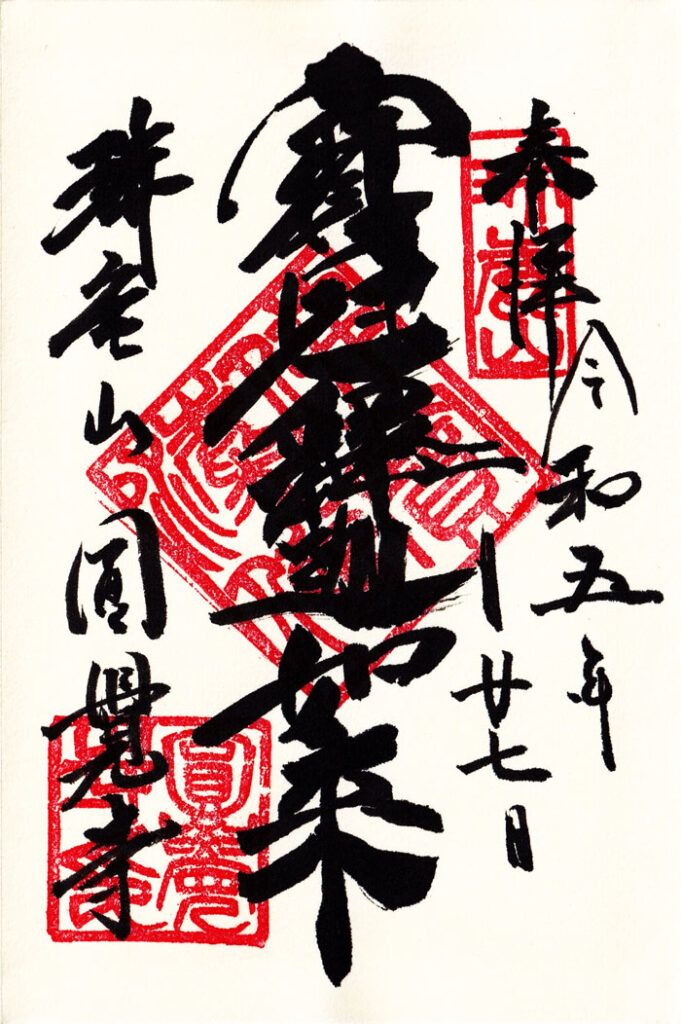 奉拝 令和五年
二月廿七日
寶冠釋迦如来
瑞鹿山圓覺寺